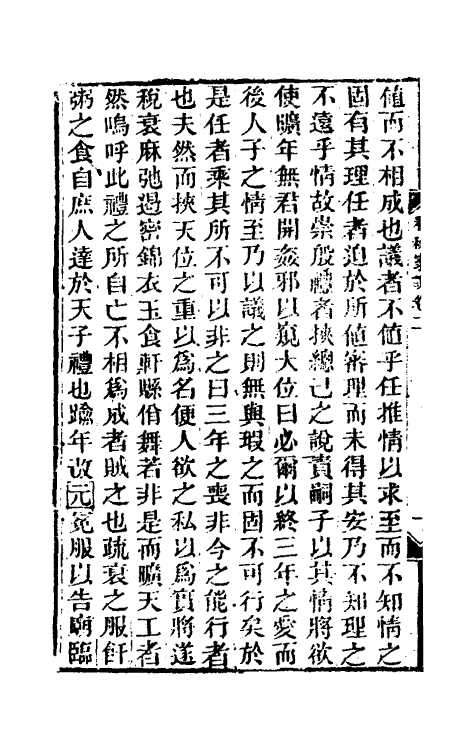 值而不相成也議者不値乎任推情以求至而不知情之
固有其理任者迫於所値審理而未得其安乃不知理之
不遠乎情故崇殷禮者挾總己之說責嗣子以其情將欲
使曠年無君開姦邪以窺大位曰必爾以終三年之愛而
後人子之情至乃以議之則無與瑕之而固不可行矣於
是任者乘其所不可以非之曰三年之喪非今之能行者
也夫然而挾天位之重以爲名便人欲之私以爲實將遂
稅衰麻弛遏密錦衣玉食軒縣佾舞若非是而曠天工者
然嗚呼此禮之所自亡不相爲成者賊之也疏衰之服飦
粥之食自庶人達於天子禮也踰年改元冕服以告廟臨